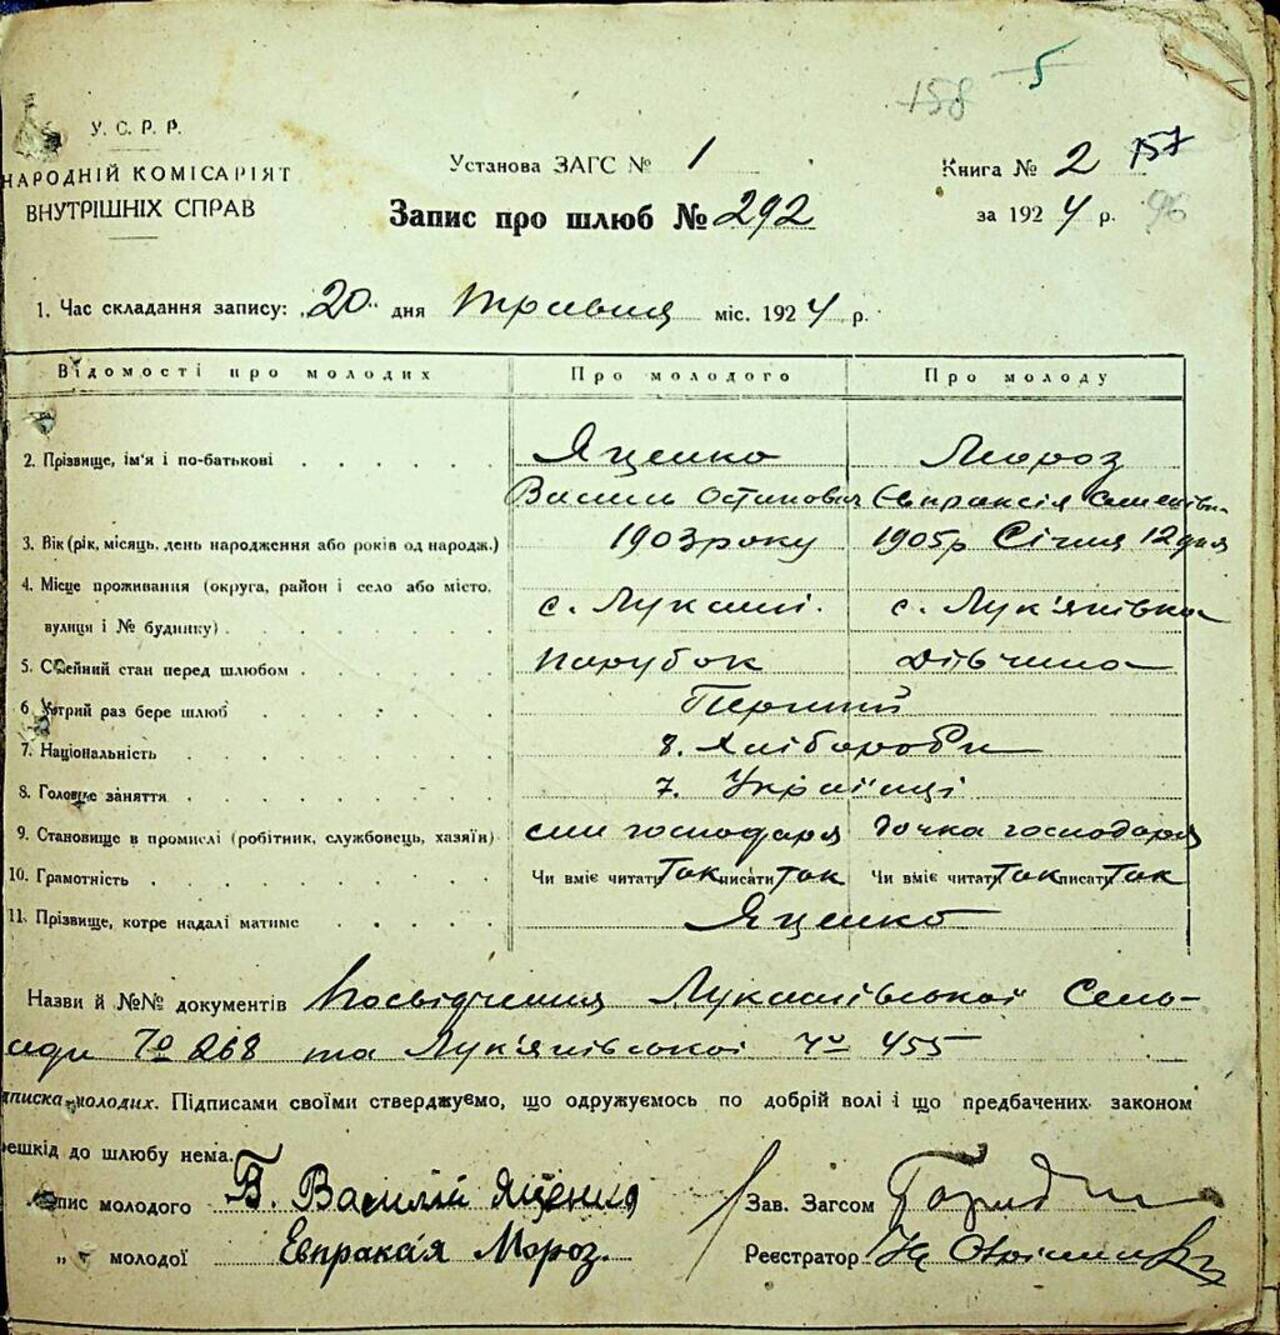 158 5
У. С. Р. Р.
НАРОДНІЙ КОМІСАРІЯТ
ВНУТРІШНІХ СПРАВ
Установа ЗАГС № 1
Книга № 2 157
Запис про шлюб № 292
за 1924 р. 96
1. Час складання запису: „20" дня травня міс. 1924 р.
Відомості про молодих Про молодого Про молоду
2. Прізвище, ім'я і по-батькові Яценко Мороз
Василь Остапович Євпраксія Семенівн-
3. Вік (рік, місяць, день народження або років од народж.) 1903 року 1905 р Січня 12 дня
4. Місце проживання (округа, район і село або місто,
вулиця і № будинку) с. Лукаші. с. Лук'янівка
5. Сімейний стан перед шлюбом парубок дівчина
6. Котрий раз бере шлюб Перший
7. Національність 8. Хлібороби
8. Головне заняття 7. Українці
9. Становище в промислі (робітник, службовець, хазяїн) син господаря дочка господаря
10. Грамотність Чи вміє читати так писати так Чи вміє читати так писати так
11. Прізвище, котре надалі матиме Яценко
Назви й №№ документів Посвідчення Лукашівської Сель-
ради № 268 та Лук'янівської № 455
підписка молодих. Підписами своїми стверджуємо, що одружуємось по добрій волі і що предбачених законом
решкід до шлюбу нема.
Підпис молодого Василій Яценко Зав. Загсом
„ молодої Евпраксія Мороз. Реєстратор